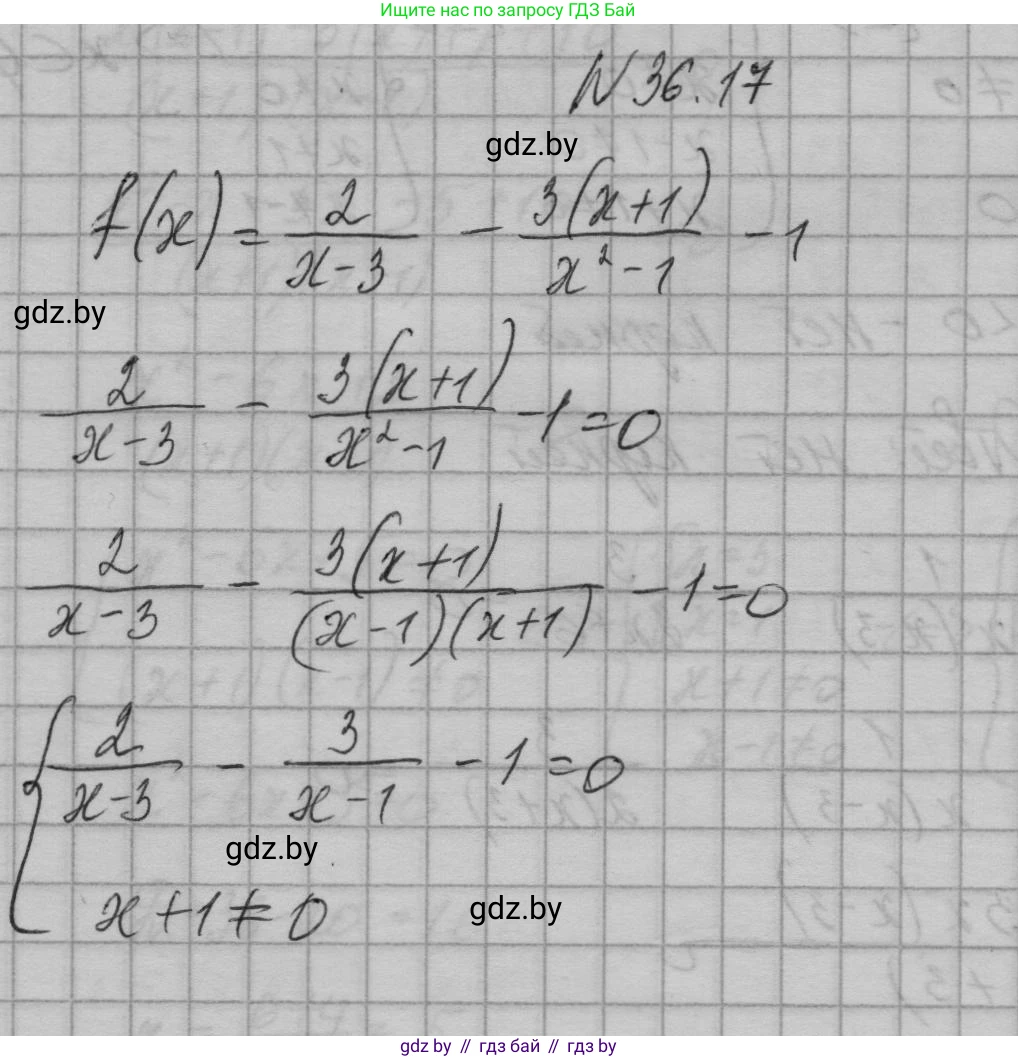 Ищите нас по запросу ГДЗ Бай
N 36.17
gdz.by
f(x) = 2/(x-3) - 3(x+1)/(x²-1) - 1
gdz.by
2/(x-3) - 3(x+1)/(x²-1) - 1 = 0
2/(x-3) - 3(x+1)/((x-1)(x+1)) - 1 = 0
{ 2/(x-3) - 3/(x-1) - 1 = 0
gdz.by
x + 1 ≠ 0
gdz.by
gdz by // гдз бай // gdz by